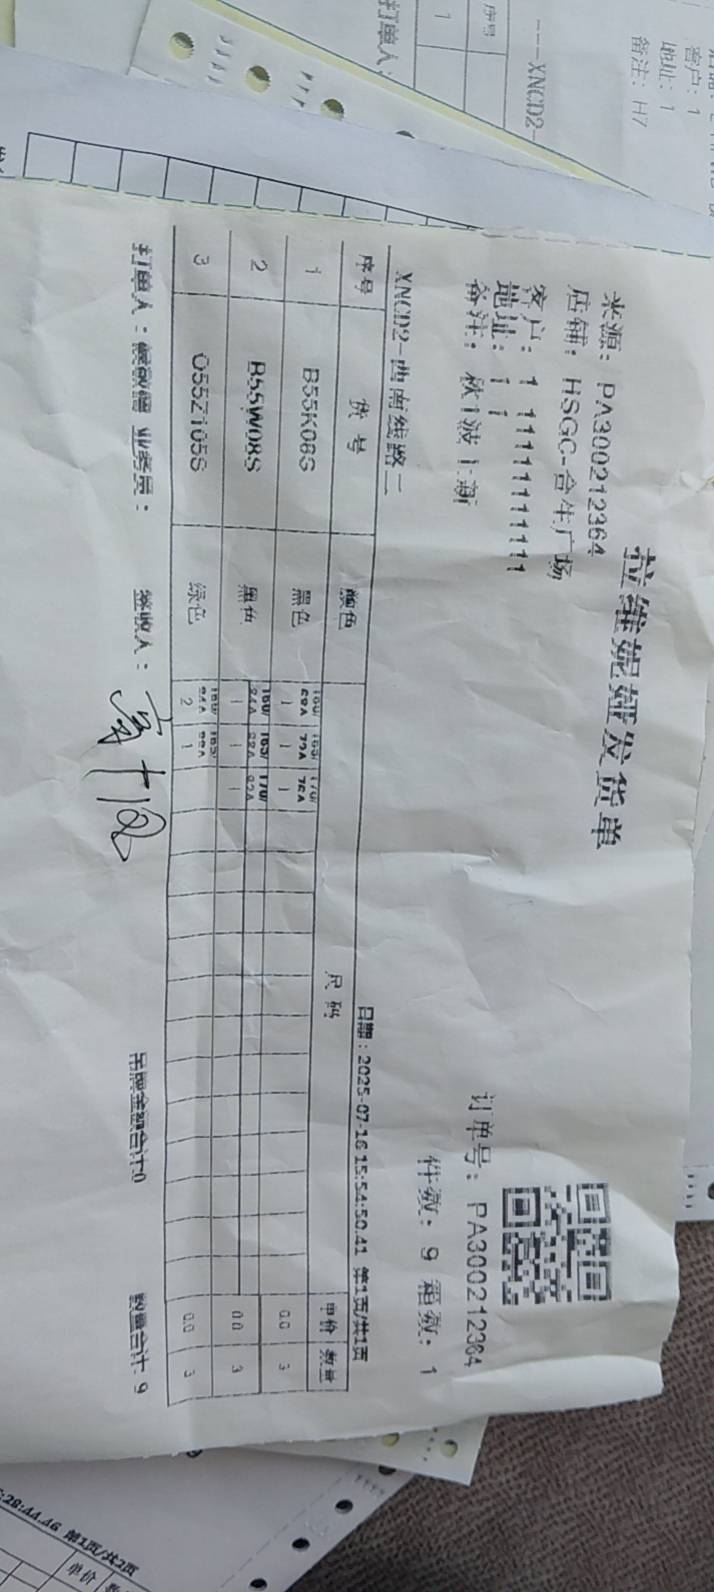 拉维妮娅发货单
来源：PA300212364
店铺：HSGC-合生广场
订单号：PA300212364
客户：1 11111111111
地址：1 1
件数：9 箱数：1
备注：秋1波上新
XNCD2-西南线路二
日期：2025-07-16 15:54:50.41 第1页/共1页
序号 货号 颜色 尺码 单价 数量
160/ 165/ 170/
1 B55K08S 黑色 68A 72A 76A
1 1 1 0.0 3
160/ 165/ 170/
2 B55W08S 黑色 84A 88A 92A
1 1 1 0.0 3
160/ 165/
3 O55Z105S 绿色 84A 88A
2 1 0.0 3
打单人： 业务员： 签收人： 吊牌金额合计:0 数量合计:9
客户：1
地址：1
备注：H7
---XNCD2-
序号
1
打单人：
:28:44.46 第1页/共2页
单价